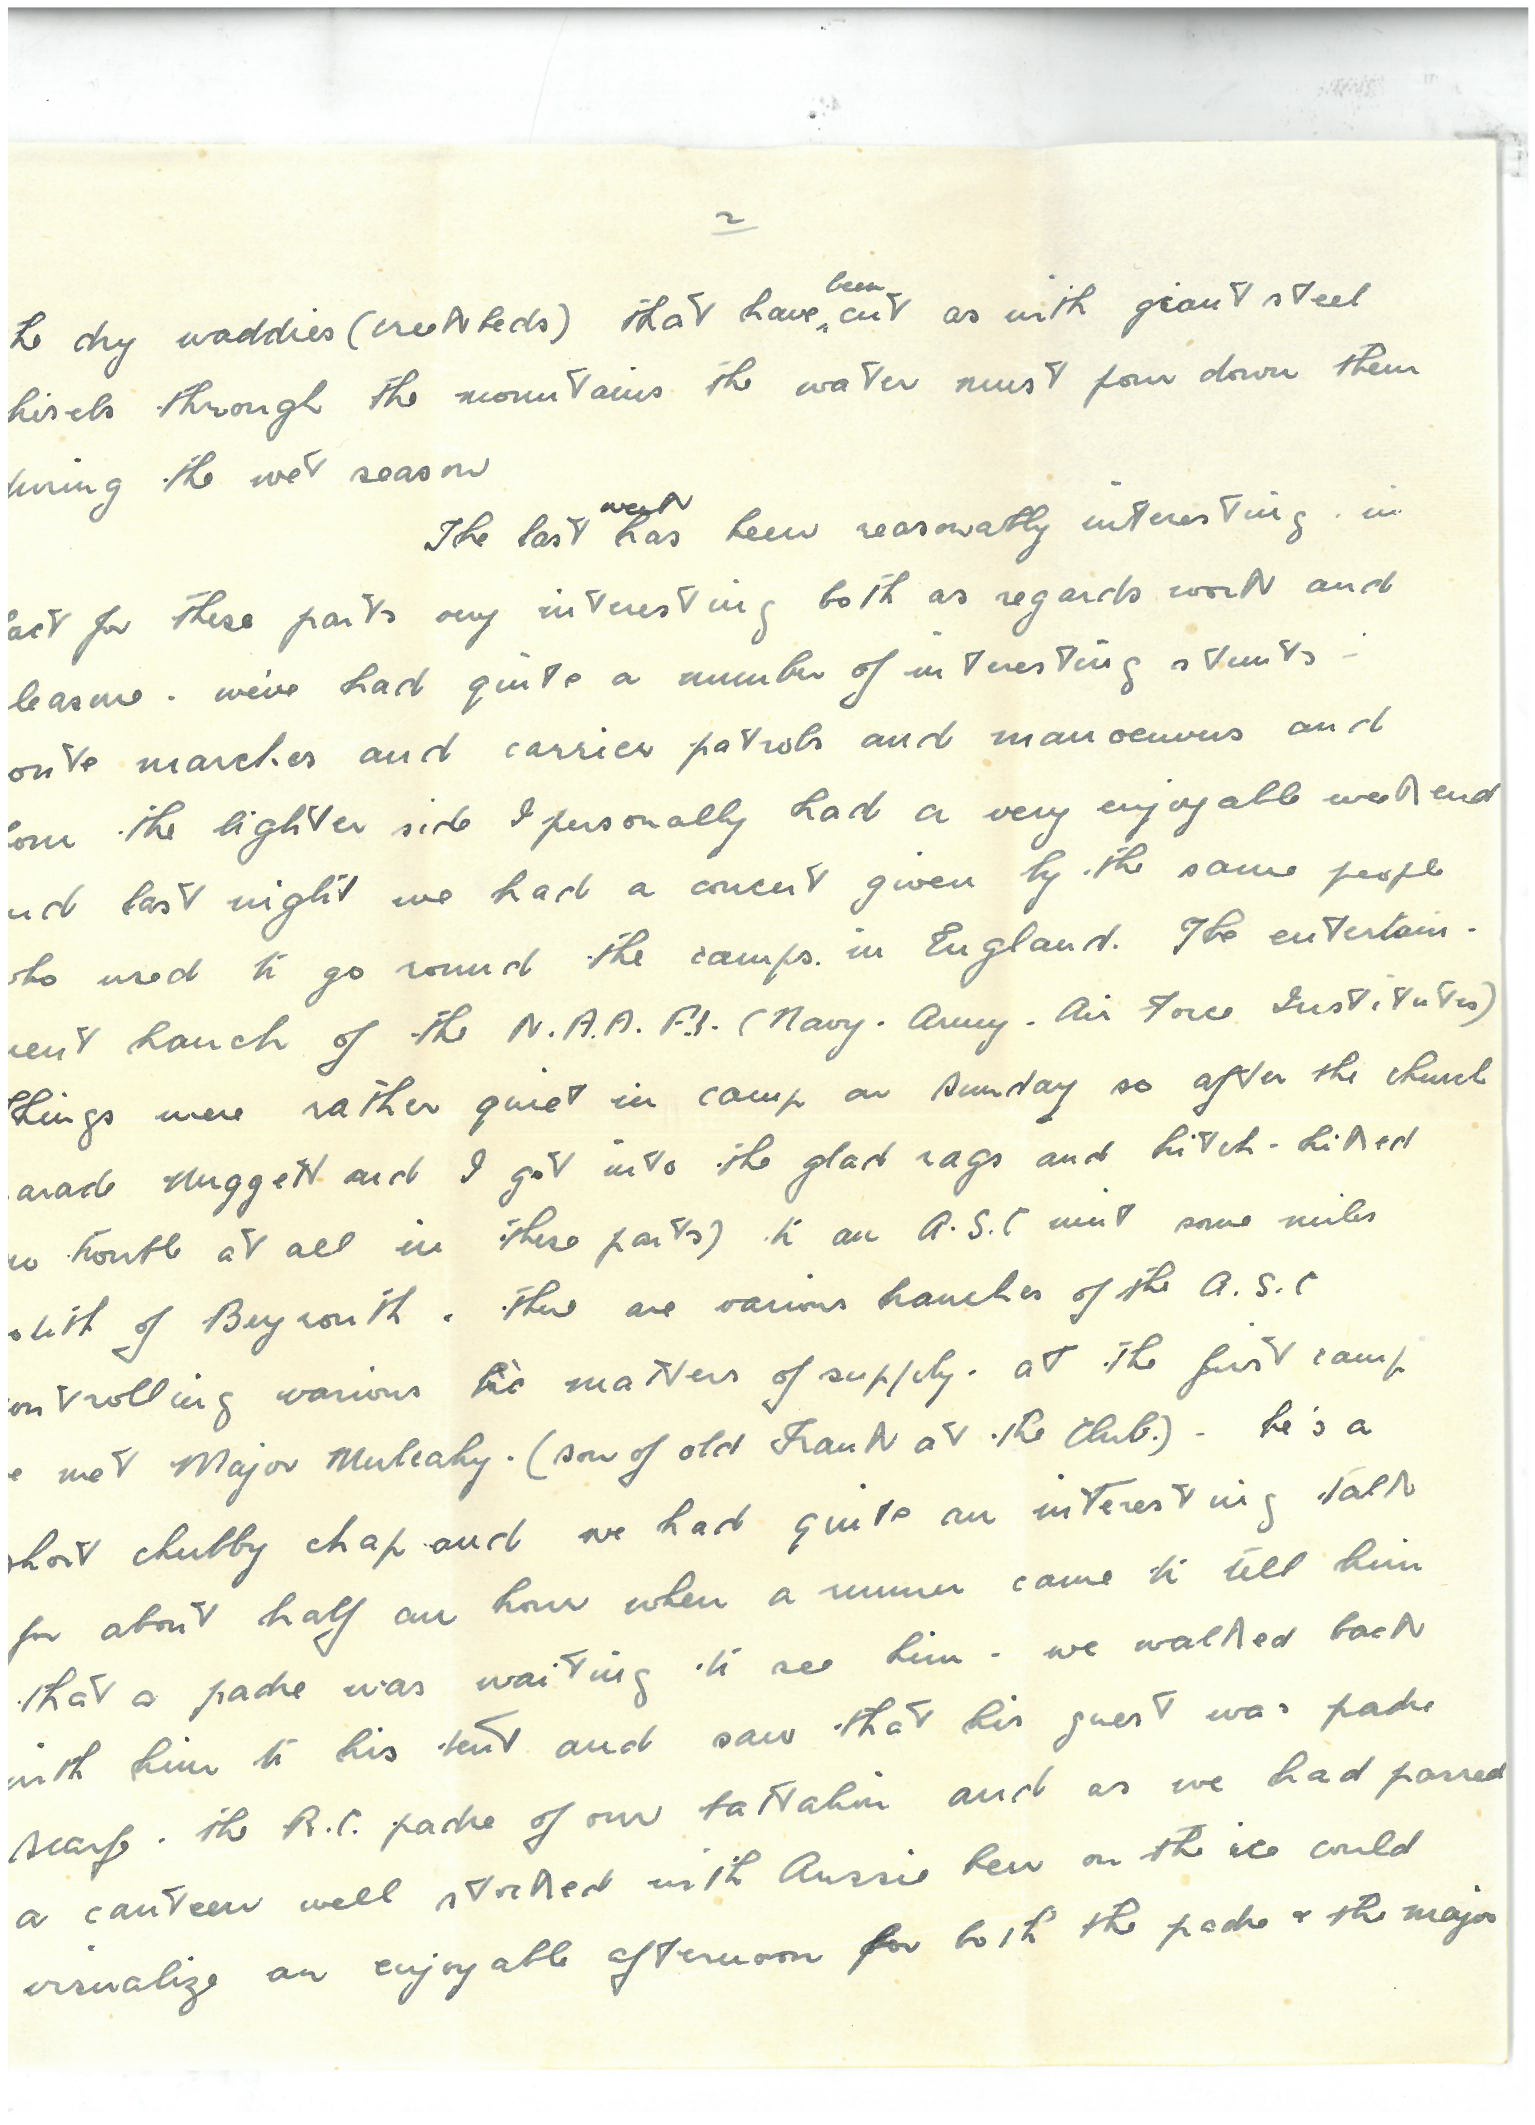 2
he dry waddies (creek beds) that have been cut as with giant steel
hisels through the mountains the water must pour down them
uring the wet season
The last week has been reasonably interesting. in
act for these parts very interesting both as regards work and
leasure. we've had quite a number of interesting stunts -
oute marches and carrier patrols and manoeuvres and
om the lighter side I personally had a very enjoyable weekend
nd last night we had a concert given by the same people
who used to go round the camps in England. The entertain-
ment branch of the N.A.A.F.I. (Navy. Army. Air Force Institutes)
Things were rather quiet in camp on Sunday so after the church
arade Nuggett and I got into the glad rags and hitch-hiked
no trouble at all in these parts) to an A.S.C unit some miles
outh of Beyrouth. there are various branches of the A.S.C
ontrolling various matters of supply. at the first camp
e met Major Mulcahy. (son of old Frank at the Club.) - he's a
short chubby chap and we had quite an interesting talk
for about half an hour when a runner came to tell him
that a padre was waiting to see him - we walked back
with him to his tent and saw that his guest was padre
Scarfe. the R.C. padre of our battalion and as we had passed
a canteen well stocked with Aussie beer on the ice could
visualize an enjoyable afternoon for both the padre & the major